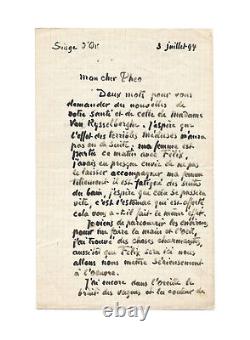 3 juillet 94
mon cher Theo
Deux mots pour vous
demander des nouvelles de
votre santé et de celle de Madame
Van Rysselberghe. J'espère que
l'effet des terribles méduses n'aura
pas eu de suite; ma femme est
partie ce matin avec Félix;
j'avais eu presque envie de ne pas
le laisser accompagner ma femme
tellement il est fatigué des suites
du bain, j'espère que cela se passera
vite, c'est l'estomac qui est affecté
cela vous a-t-il fait le même effet.
Je viens de parcourir les environs
pour me faire la main et l'oeil,
j'ai trouvé des choses charmantes,
aussitôt que Félix sera ici nous
allons nous mettre sérieusement
à l'oeuvre.
J'ai encore dans l'oreille le
bruit des vagues et la couleur du
© hemtd.com